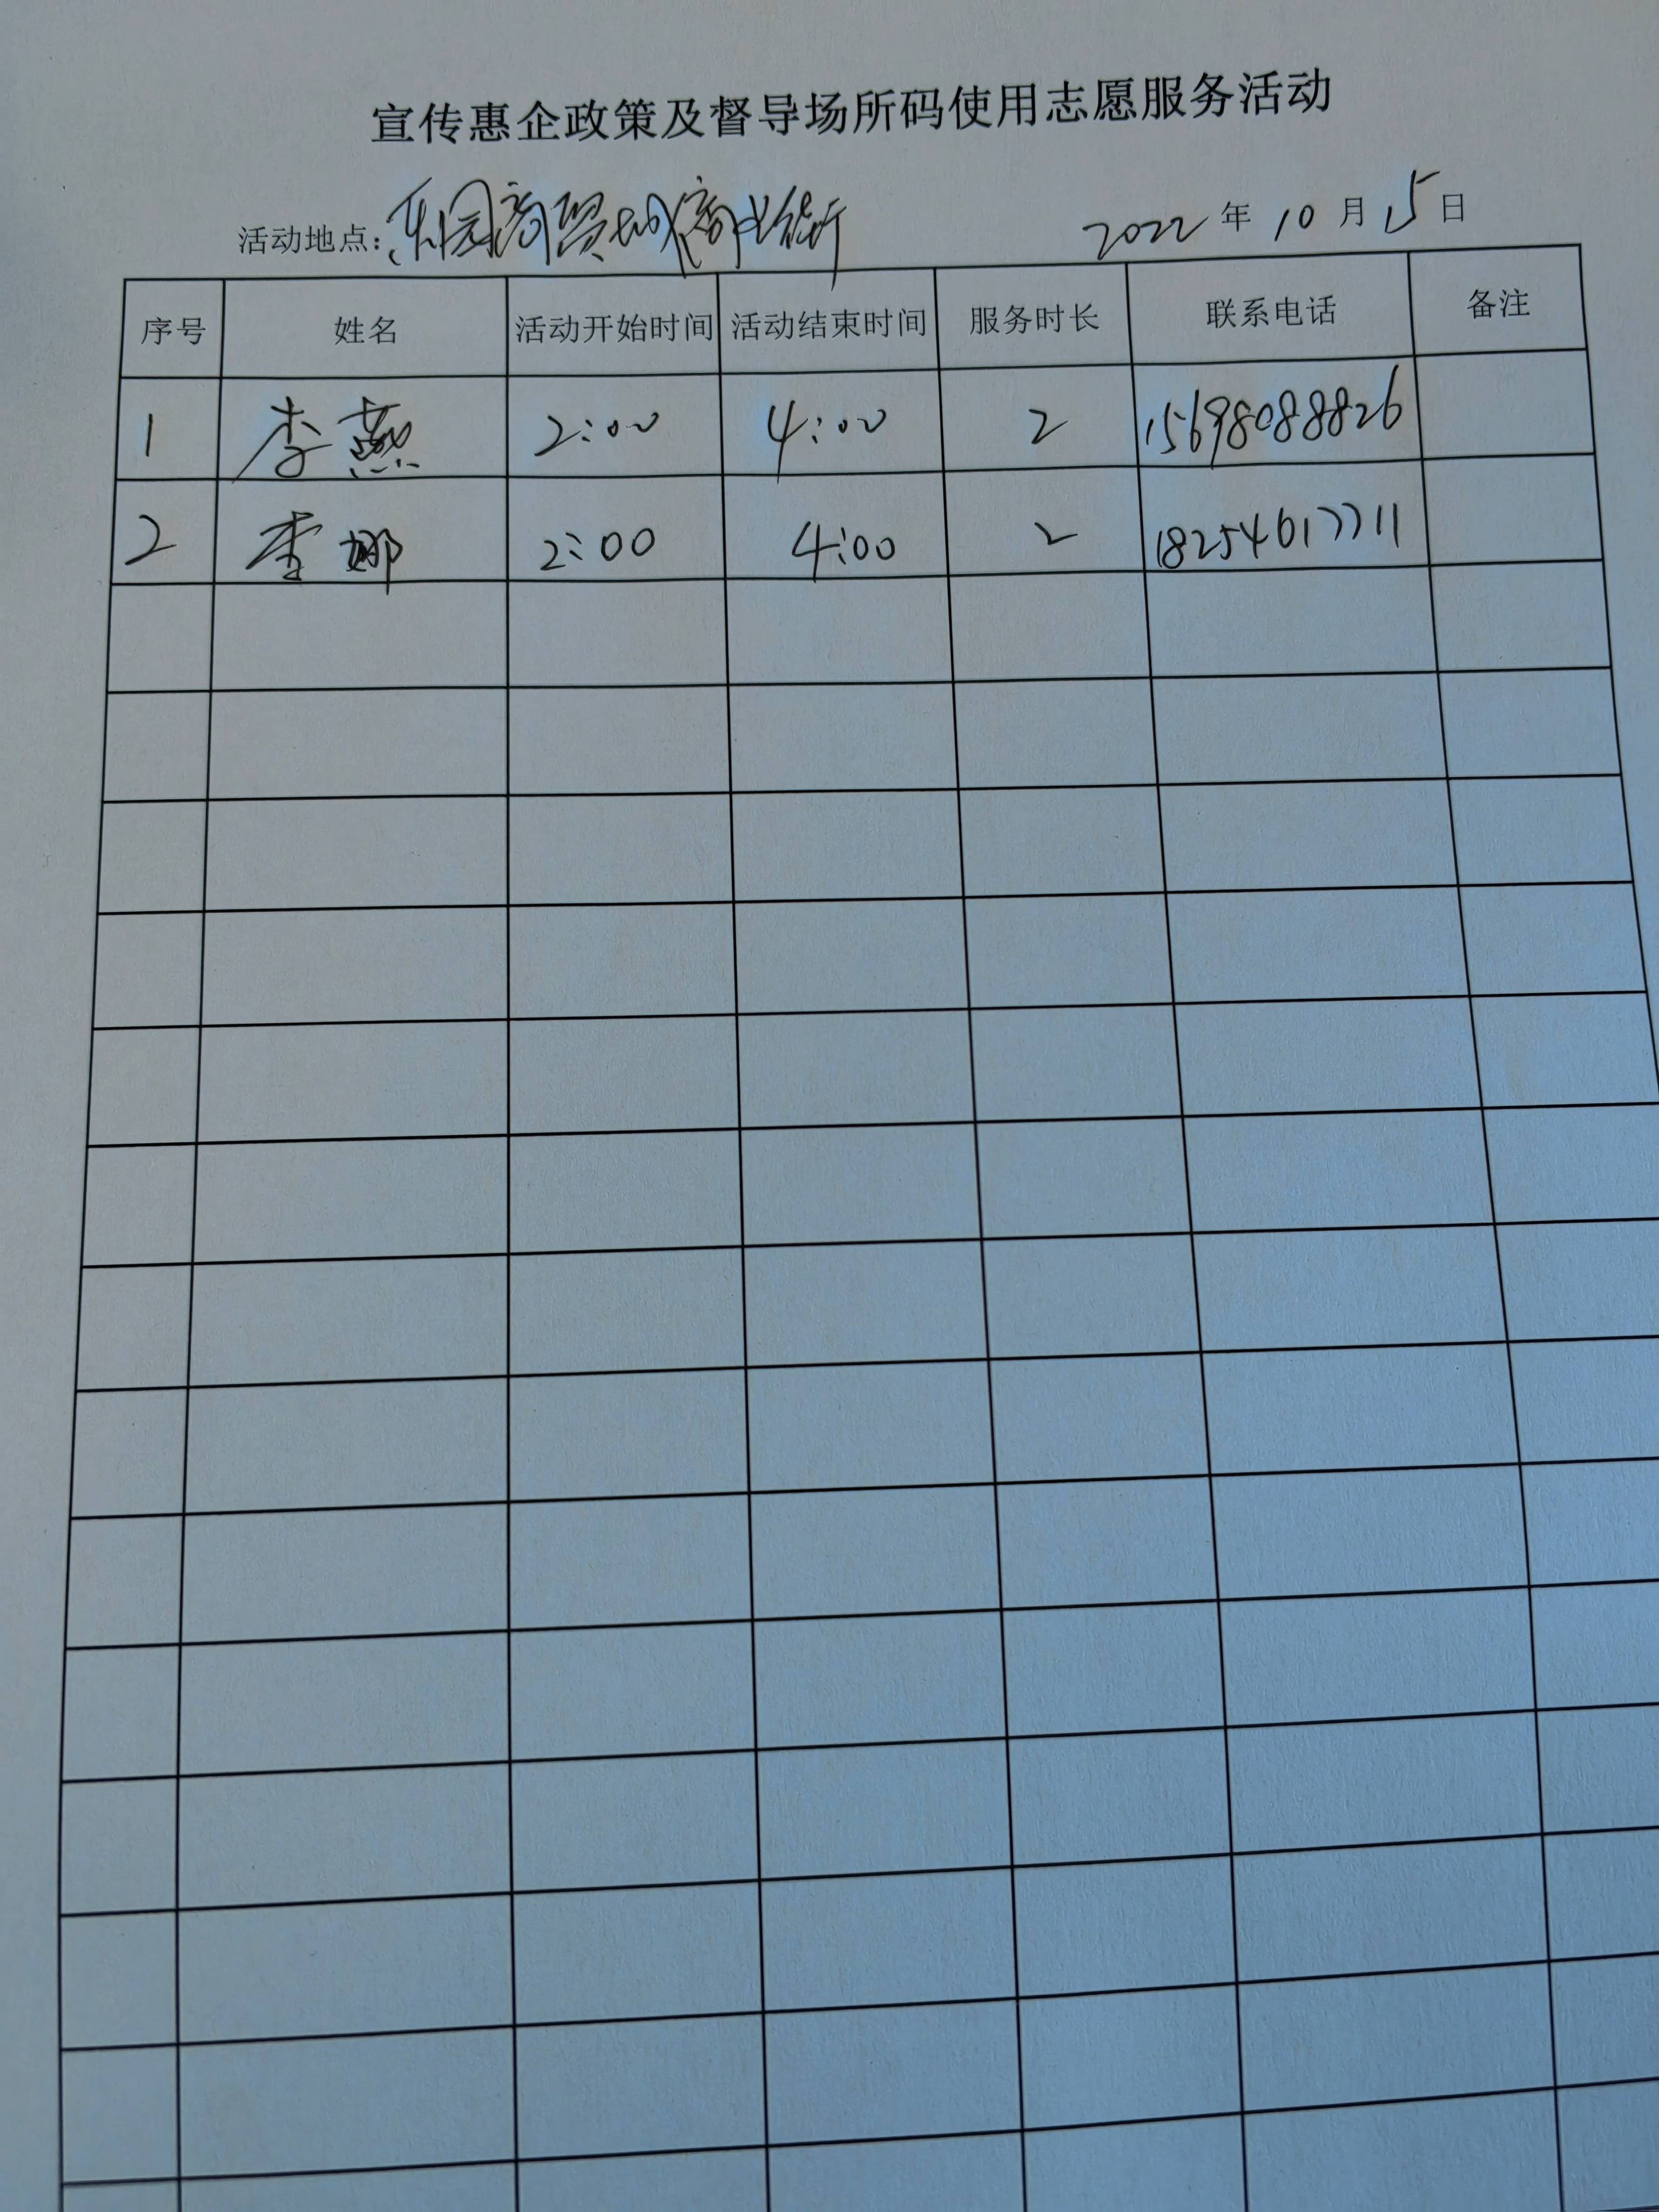 宣传惠企政策及督导场所码使用志愿服务活动
活动地点：乐园商贸城商业街 2022年10月15日
序号 姓名 活动开始时间 活动结束时间 服务时长 联系电话 备注
1 李燕 2:00 4:00 2 15698088826
2 李娜 2:00 4:00 2 18254617711